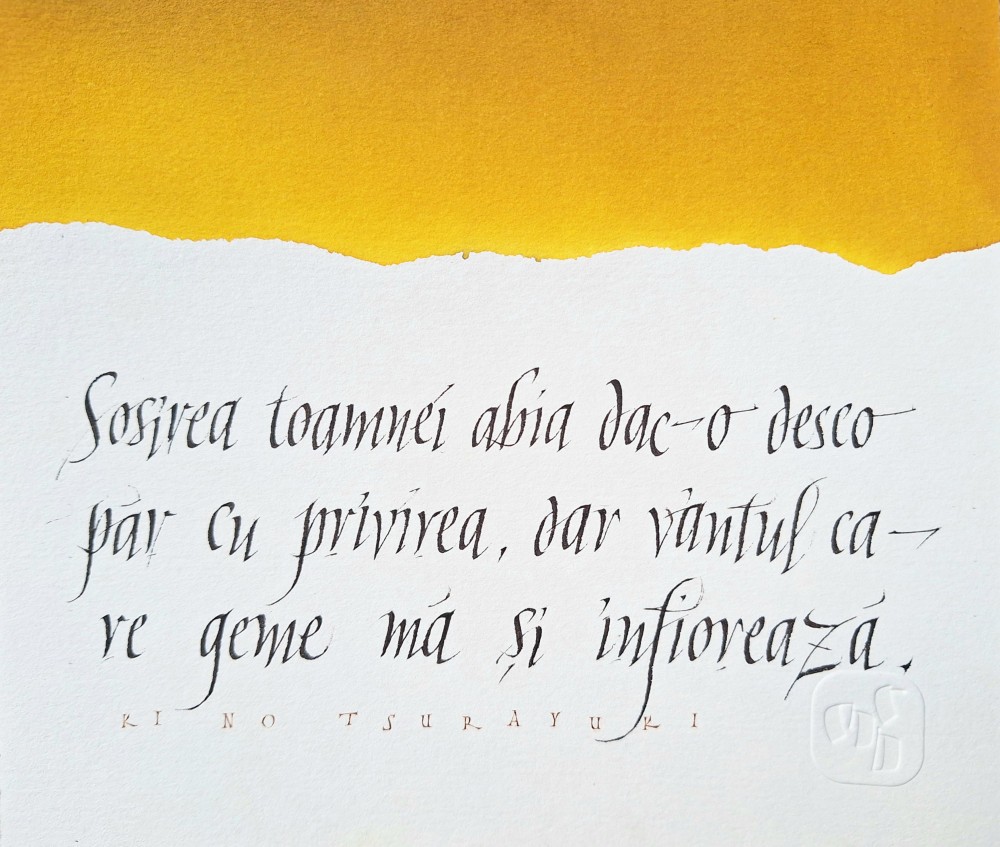 Sosirea toamnei abia dac-o desco
păr cu privirea, dar vântul ca-
re geme mă și înfiorează.
KI NO TSURAYUKI